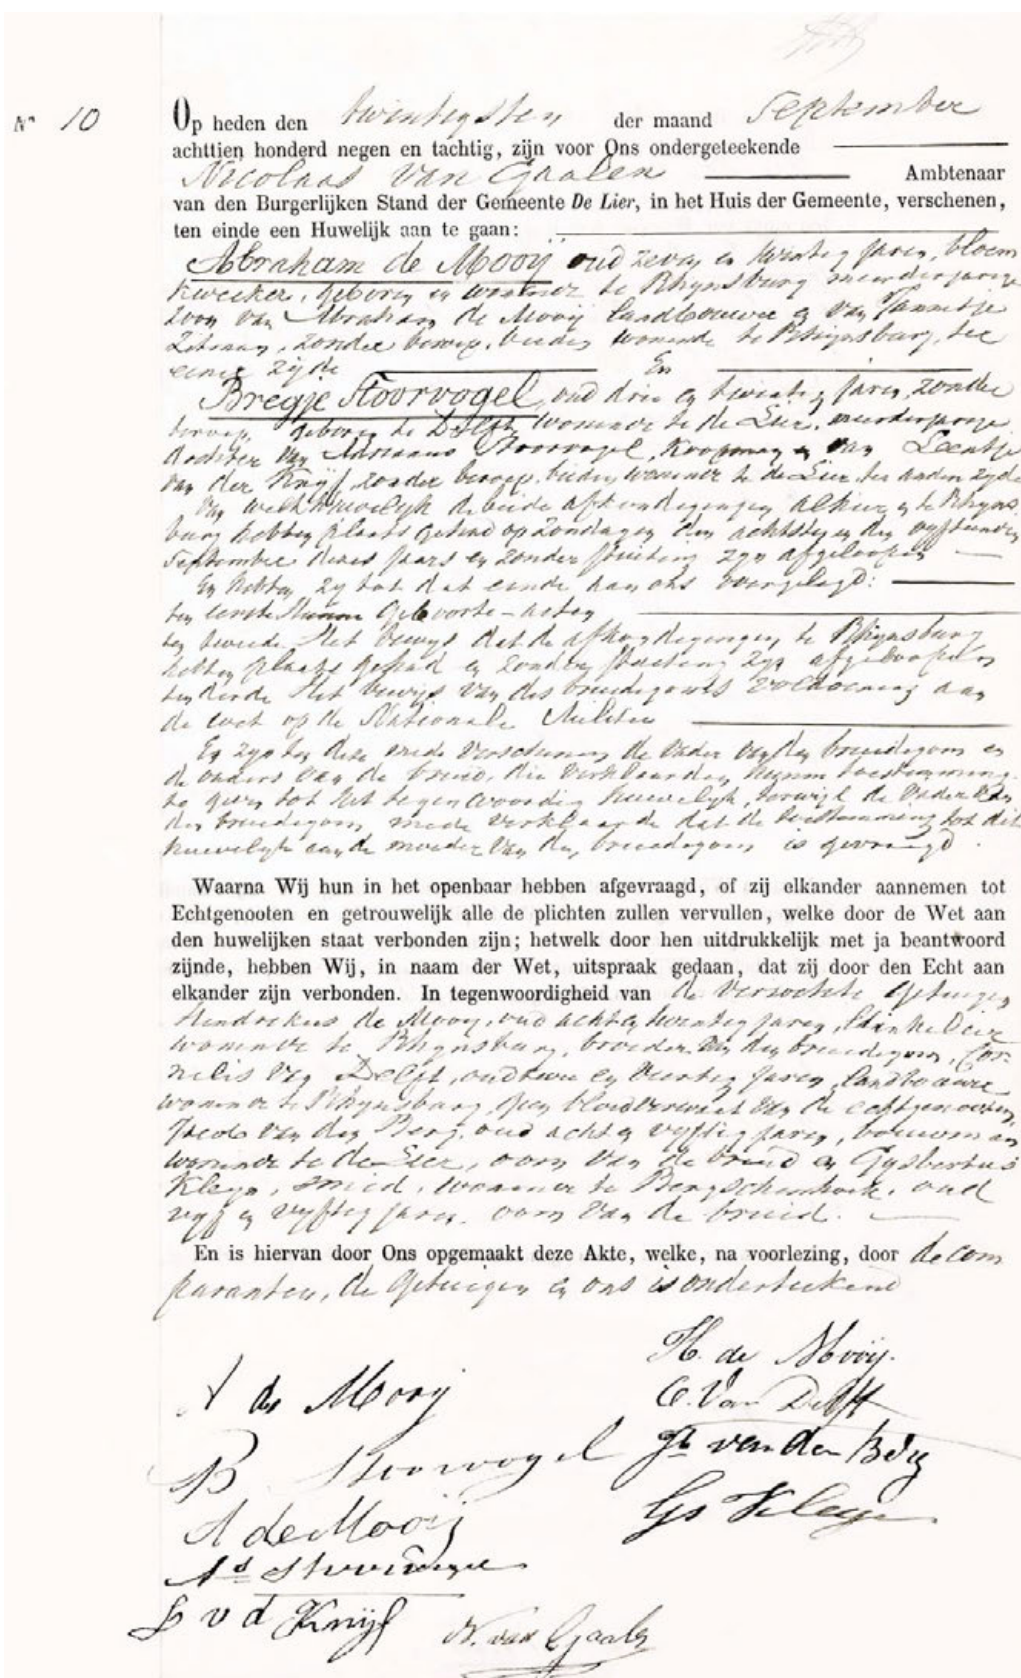 Nº 10
Op heden den twintigsten der maand September
achttien honderd negen en tachtig, zijn voor Ons ondergeteekende
Nicolaas van Gaalen Ambtenaar
van den Burgerlijken Stand der Gemeente De Lier, in het Huis der Gemeente, verschenen,
ten einde een Huwelijk aan te gaan:
Abraham de Mooij oud zeven en twintig jaren, bloem
kweeker, geboren en wonende te Rhijnsburg meerderjarige
zoon van Abraham de Mooij landbouwer en van Jannetje
zonder beroep, beiden wonende te Rhijnsburg, ter
eene zijde En
Bregje Stoorvogel, oud drie en twintig jaren, zonder
beroep, geboren te Delft, wonende te de Lier, meerderjarige
dochter van Adrianus Stoorvogel, Koopman en van Leentje
van der Knijf, zonder beroep, beiden wonende te de Lier, ter andere zijde
Van welk huwelijk de beide afkondigingen alhier en te Rhijns
burg hebben plaats gehad op Zondagen den achtsten en den vijftienden
September dezes jaars en zonder stuiting zijn afgeloopen
En hebben zij tot dat einde aan ons overgelegd:
ten eerste Hunne Geboorte-akten
ten tweede Het bewijs dat de afkondigingen te Rhijnsburg
hebben plaats gehad en zonder stuiting zijn afgeloopen
ten derde Het bewijs van des bruidegoms voldoening aan
de wet op de Nationale Militie
En zijn ter dezer mede verschenen de vader van den bruidegom en
de ouders van de bruid, die verklaarden hunne toestemming
te geven tot het tegenwoordig huwelijk, terwijl de vader van
den bruidegom mede verklaarde dat de toestemming tot dit
huwelijk aan de moeder van den bruidegom is gevraagd.
Waarna Wij hun in het openbaar hebben afgevraagd, of zij elkander aannemen tot
Echtgenooten en getrouwelijk alle de plichten zullen vervullen, welke door de Wet aan
den huwelijken staat verbonden zijn; hetwelk door hen uitdrukkelijk met ja beantwoord
zijnde, hebben Wij, in naam der Wet, uitspraak gedaan, dat zij door den Echt aan
elkander zijn verbonden. In tegenwoordigheid van de verzochte getuigen
Hendrikus de Mooij, oud acht en twintig jaren,
wonende te Rhijnsburg, broeder van den bruidegom, Cor-
nelis van Delft, oud twee en veertig jaren, landbouwer
wonende te Rhijnsburg, geen bloedverwant van de echtgenooten,
Jacob van den Berg, oud acht en vijftig jaren, bouwman
wonende te de Lier, oom van de bruid en Gijsbertus
Kleyn, smid, wonende te Bergschenhoek, oud
vijf en vijftig jaren, oom van de bruid.
En is hiervan door Ons opgemaakt deze Akte, welke, na voorlezing, door de com
paranten, de getuigen en ons is onderteekend
A de Mooij
B Stoorvogel
A de Mooij
Ad Stoorvogel
L v d Knijf
H. de Mooij.
C. Van Delft
Jb van den Berg
Gs Kleyn
N. van Gaalen